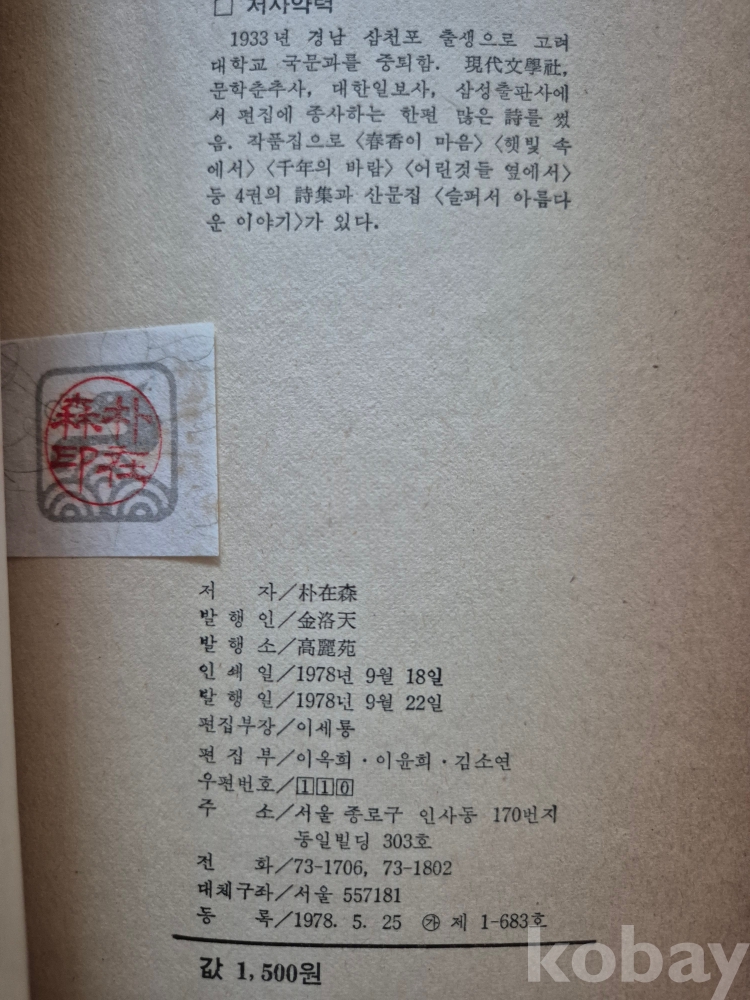 □ 저자약력
1933년 경남 삼천포 출생으로 고려
대학교 국문과를 중퇴함. 現代文學社,
문학춘추사, 대한일보사, 삼성출판사에
서 편집에 종사하는 한편 많은 詩를 썼
음. 작품집으로 〈春香이 마음〉 〈햇빛 속
에서〉 〈千年의 바람〉 〈어린것들 옆에서〉
등 4권의 詩集과 산문집 〈슬퍼서 아름다
운 이야기〉가 있다.
朴在森印
저 자/朴在森
발 행 인/金洛天
발 행 소/高麗苑
인 쇄 일/1978년 9월 18일
발 행 일/1978년 9월 22일
편집부장/이세룡
편 집 부/이옥희·이윤희·김소연
우편번호/110
주 소/서울 종로구 인사동 170번지
동일빌딩 303호
전 화/73-1706, 73-1802
대체구좌/서울 557181
등 록/1978. 5. 25 ㉮ 제 1-683호
값 1,500원
kobay